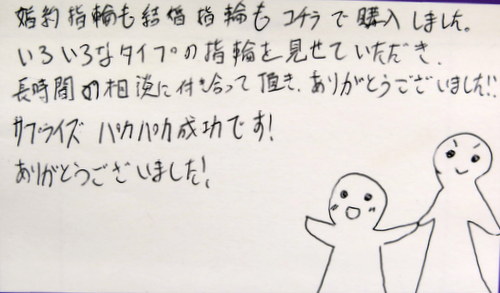 婚約指輪も結婚指輪もコチラで購入しました。
いろいろなタイプの指輪を見せていただき、
長時間の相談に付き合って頂き、ありがとうございました!!
サプライズ パカパカ成功です!
ありがとうございました!